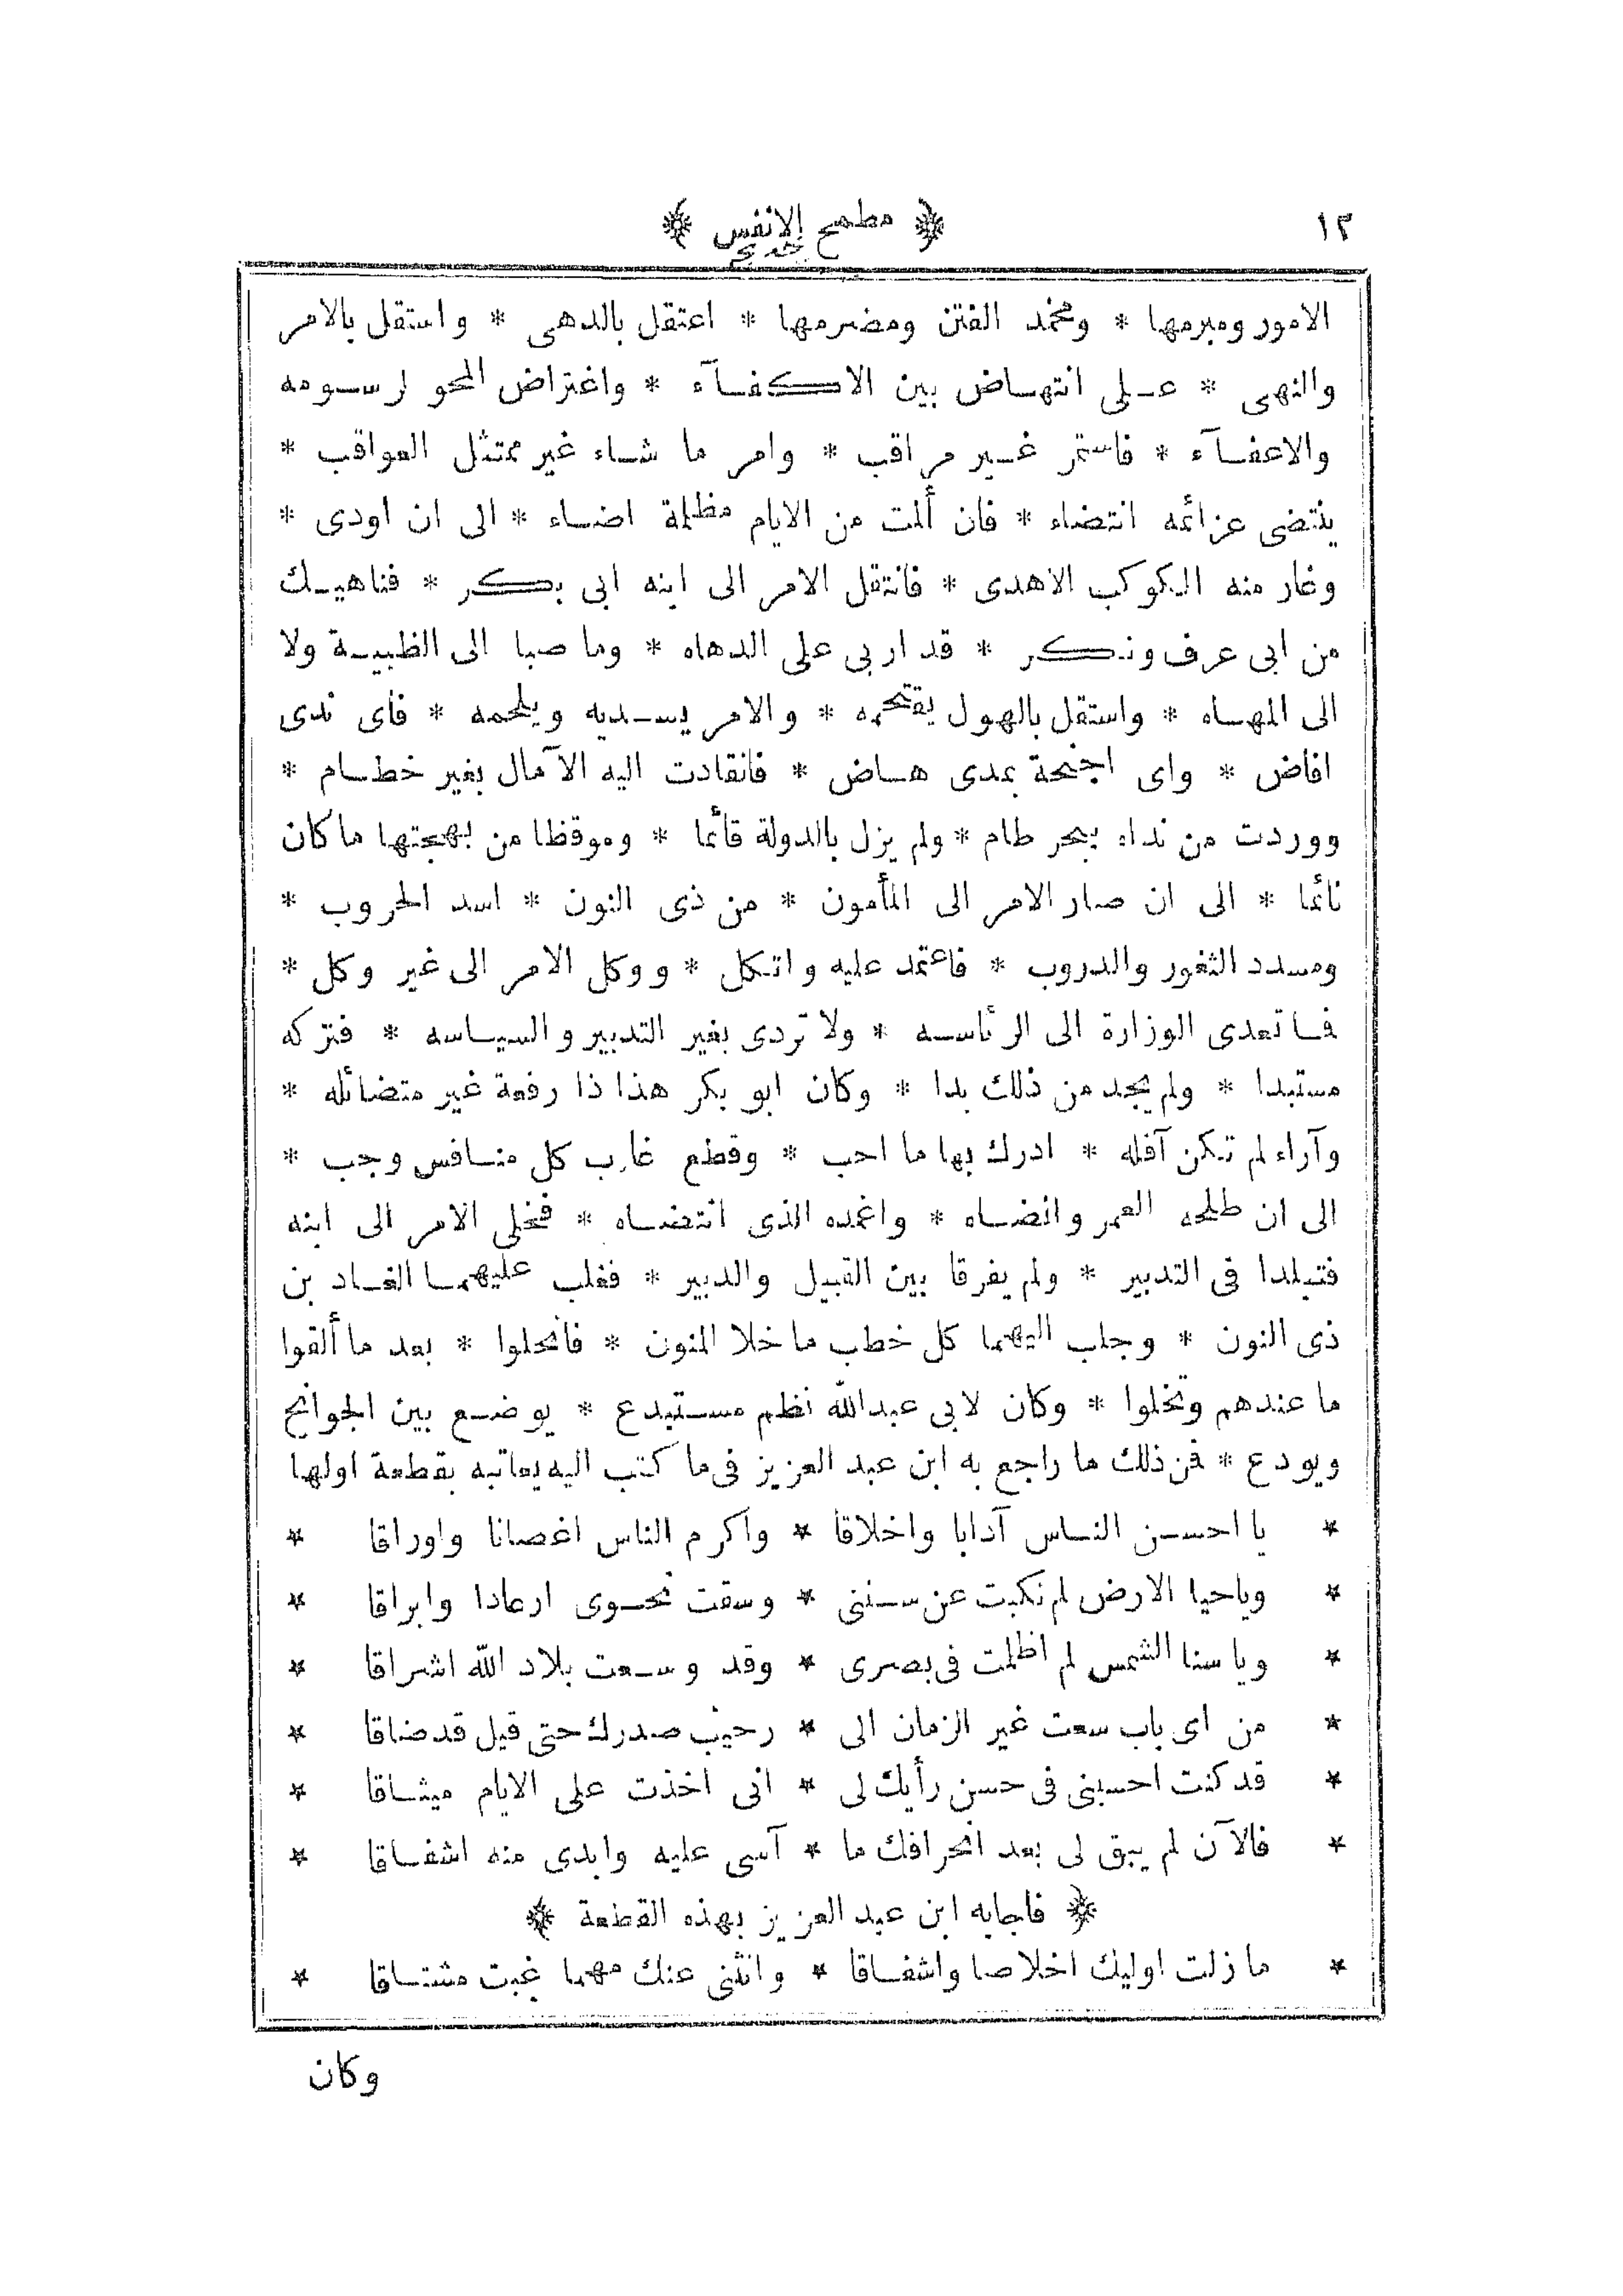 ١٢ ﴿ مطمح الانفس ﴾
الامور ومبرمها * ومخمد الفتن ومضرمها * اعتقل بالدهى * واستقل بالامر
والنهى * على انتهاض بين الاكفآء * واغتراض المحو لرسومه
والاعفآء * فاستمر غير مراقب * وامر ما شاء غير ممتثل العواقب *
ينتضى عزائمه انتضاء * فان ألمت من الايام مظلمة اضاء * الى ان اودى *
وغار منه الكوكب الاهدى * فانتقل الامر الى ابنه ابى بكر * فناهيك
من ابى عرف ونكر * قد اربى على الدهاه * وما صبا الى الظبية ولا
الى المهاه * واستقل بالهول يقتحمه * والامر يسديه ويلحمه * فأى ندى
افاض * واى اجنحة بمدى هاض * فانقادت اليه الآمال بغير خطام *
ووردت من نداه ببحر طام * ولم يزل بالدولة قائما * وموقظا من بهجتها ما كان
نائما * الى ان صار الامر الى المأمون * من ذى النون * اسد الحروب *
ومسدد الثغور والدروب * فاعتمد عليه واتكل * ووكل الامر الى غير وكل *
فا تعدى الوزارة الى الرئاسه * ولا تردى بغير التدبير والسياسه * فتركه
مستبدا * ولم يجد من ذلك بدا * وكان ابو بكر هذا ذا رفعة غير متضائله *
وآراء لم تكن آفله * ادرك بها ما احب * وقطع غارب كل منافس وجب *
الى ان طلحه العمر وانضاه * واغمده الذى انتضاه * فخلى الامر الى ابنه
فتبلدا فى التدبير * ولم يفرقا بين القبيل والدبير * فغلب عليهما الغاد بن
ذى النون * وجلب اليهما كل خطب ما خلا المنون * فانحلوا * بعد ما ألقوا
ما عندهم وتخلوا * وكان لابى عبدالله نظم مستبدع * يوضع بين الجوانح
ويودع * فمن ذلك ما راجع به ابن عبد العزيز فى ما كتب اليه يعاتبه بقطعة اولها
* يا احسن الناس آدابا واخلاقا * واكرم الناس اغصانا واوراقا *
* وياحيا الارض لم نكبت عن سننى * وسقت نحوى ارعادا وابراقا *
* ويا سنا الشمس لم اظلمت فى بصرى * وقد وسعت بلاد الله اشراقا *
* من اى باب سعت غير الزمان الى * رحيب صدرك حتى قيل قد ضاقا *
* قد كنت احسبنى فى حسن رأيك لى * انى اخذت على الايام ميثاقا *
* فالآن لم يبق لى بعد انحرافك ما * آسى عليه وابدى منه اشفاقا *
﴿ فاجابه ابن عبد العزيز بهذه القطعة ﴾
* ما زلت اوليك اخلاصا واشفاقا * وانثنى عنك مهما غبت مشتاقا *
وكان